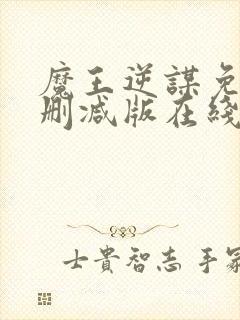 魔王逆謀免
刪减版在綫
士貴智志 手冢